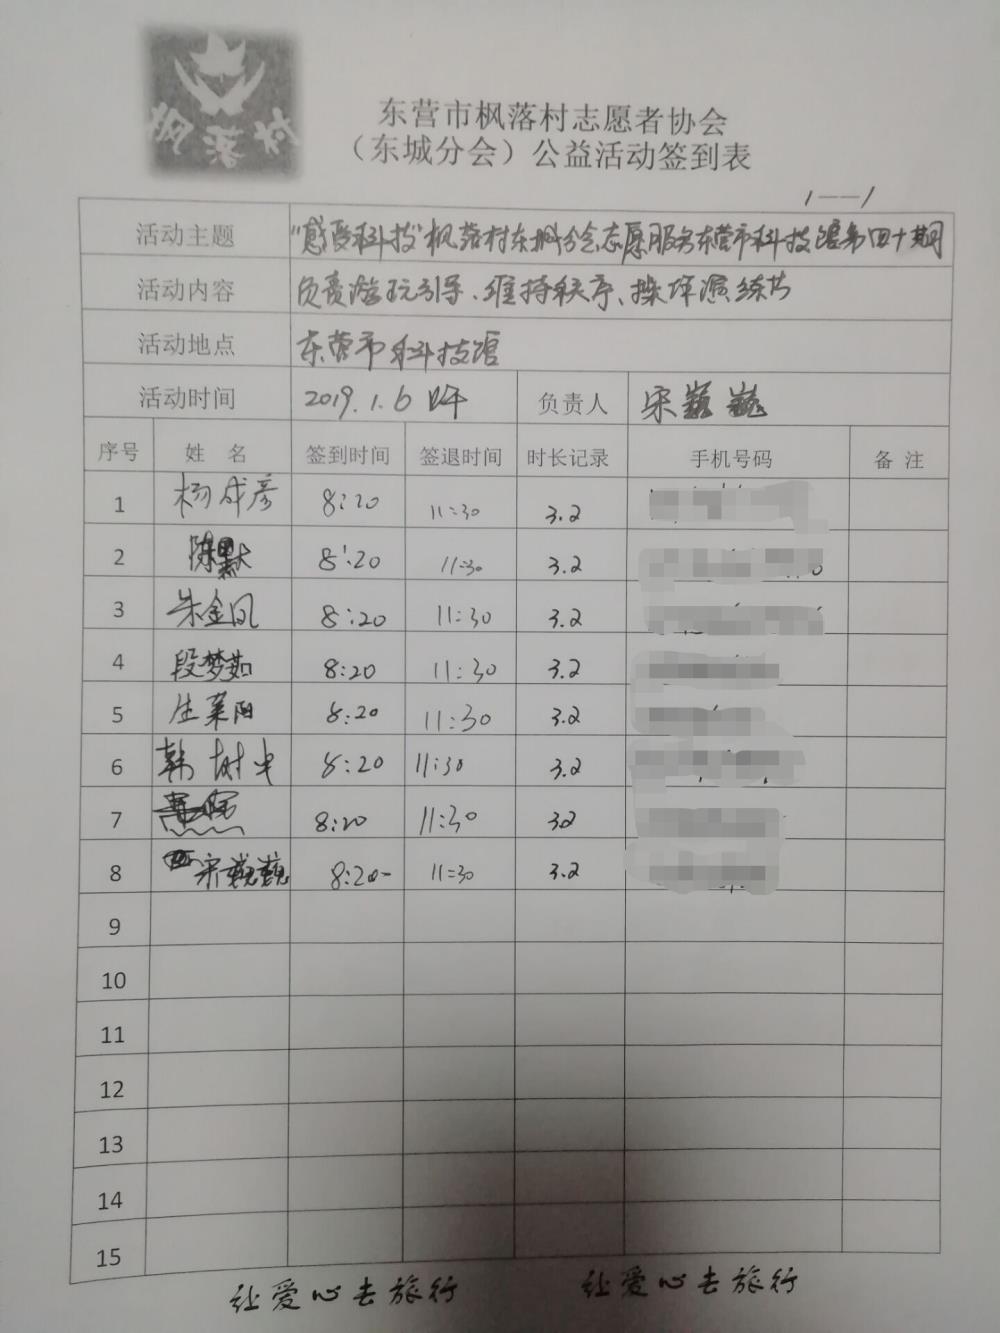 枫落村
东营市枫落村志愿者协会
（东城分会）公益活动签到表
1——1
活动主题 "感受科技"枫落村东城分会志愿服务东营市科技馆第四十期
活动内容 负责游玩引导、维持秩序、操作演练等
活动地点 东营市科技馆
活动时间 2019.1.6 上午 负责人 宋巍巍
序号 姓 名 签到时间 签退时间 时长记录 手机号码 备 注
1 杨成彦 8:20 11:30 3.2
2 陈默 8:20 11:30 3.2
3 朱金凤 8:20 11:30 3.2
4 段梦茹 8:20 11:30 3.2
5 生莱阳 8:20 11:30 3.2
6 韩树中 8:20 11:30 3.2
7 8:20 11:30 3.2
8 宋巍巍 8:20 11:30 3.2
9
10
11
12
13
14
15
让爱心去旅行 让爱心去旅行